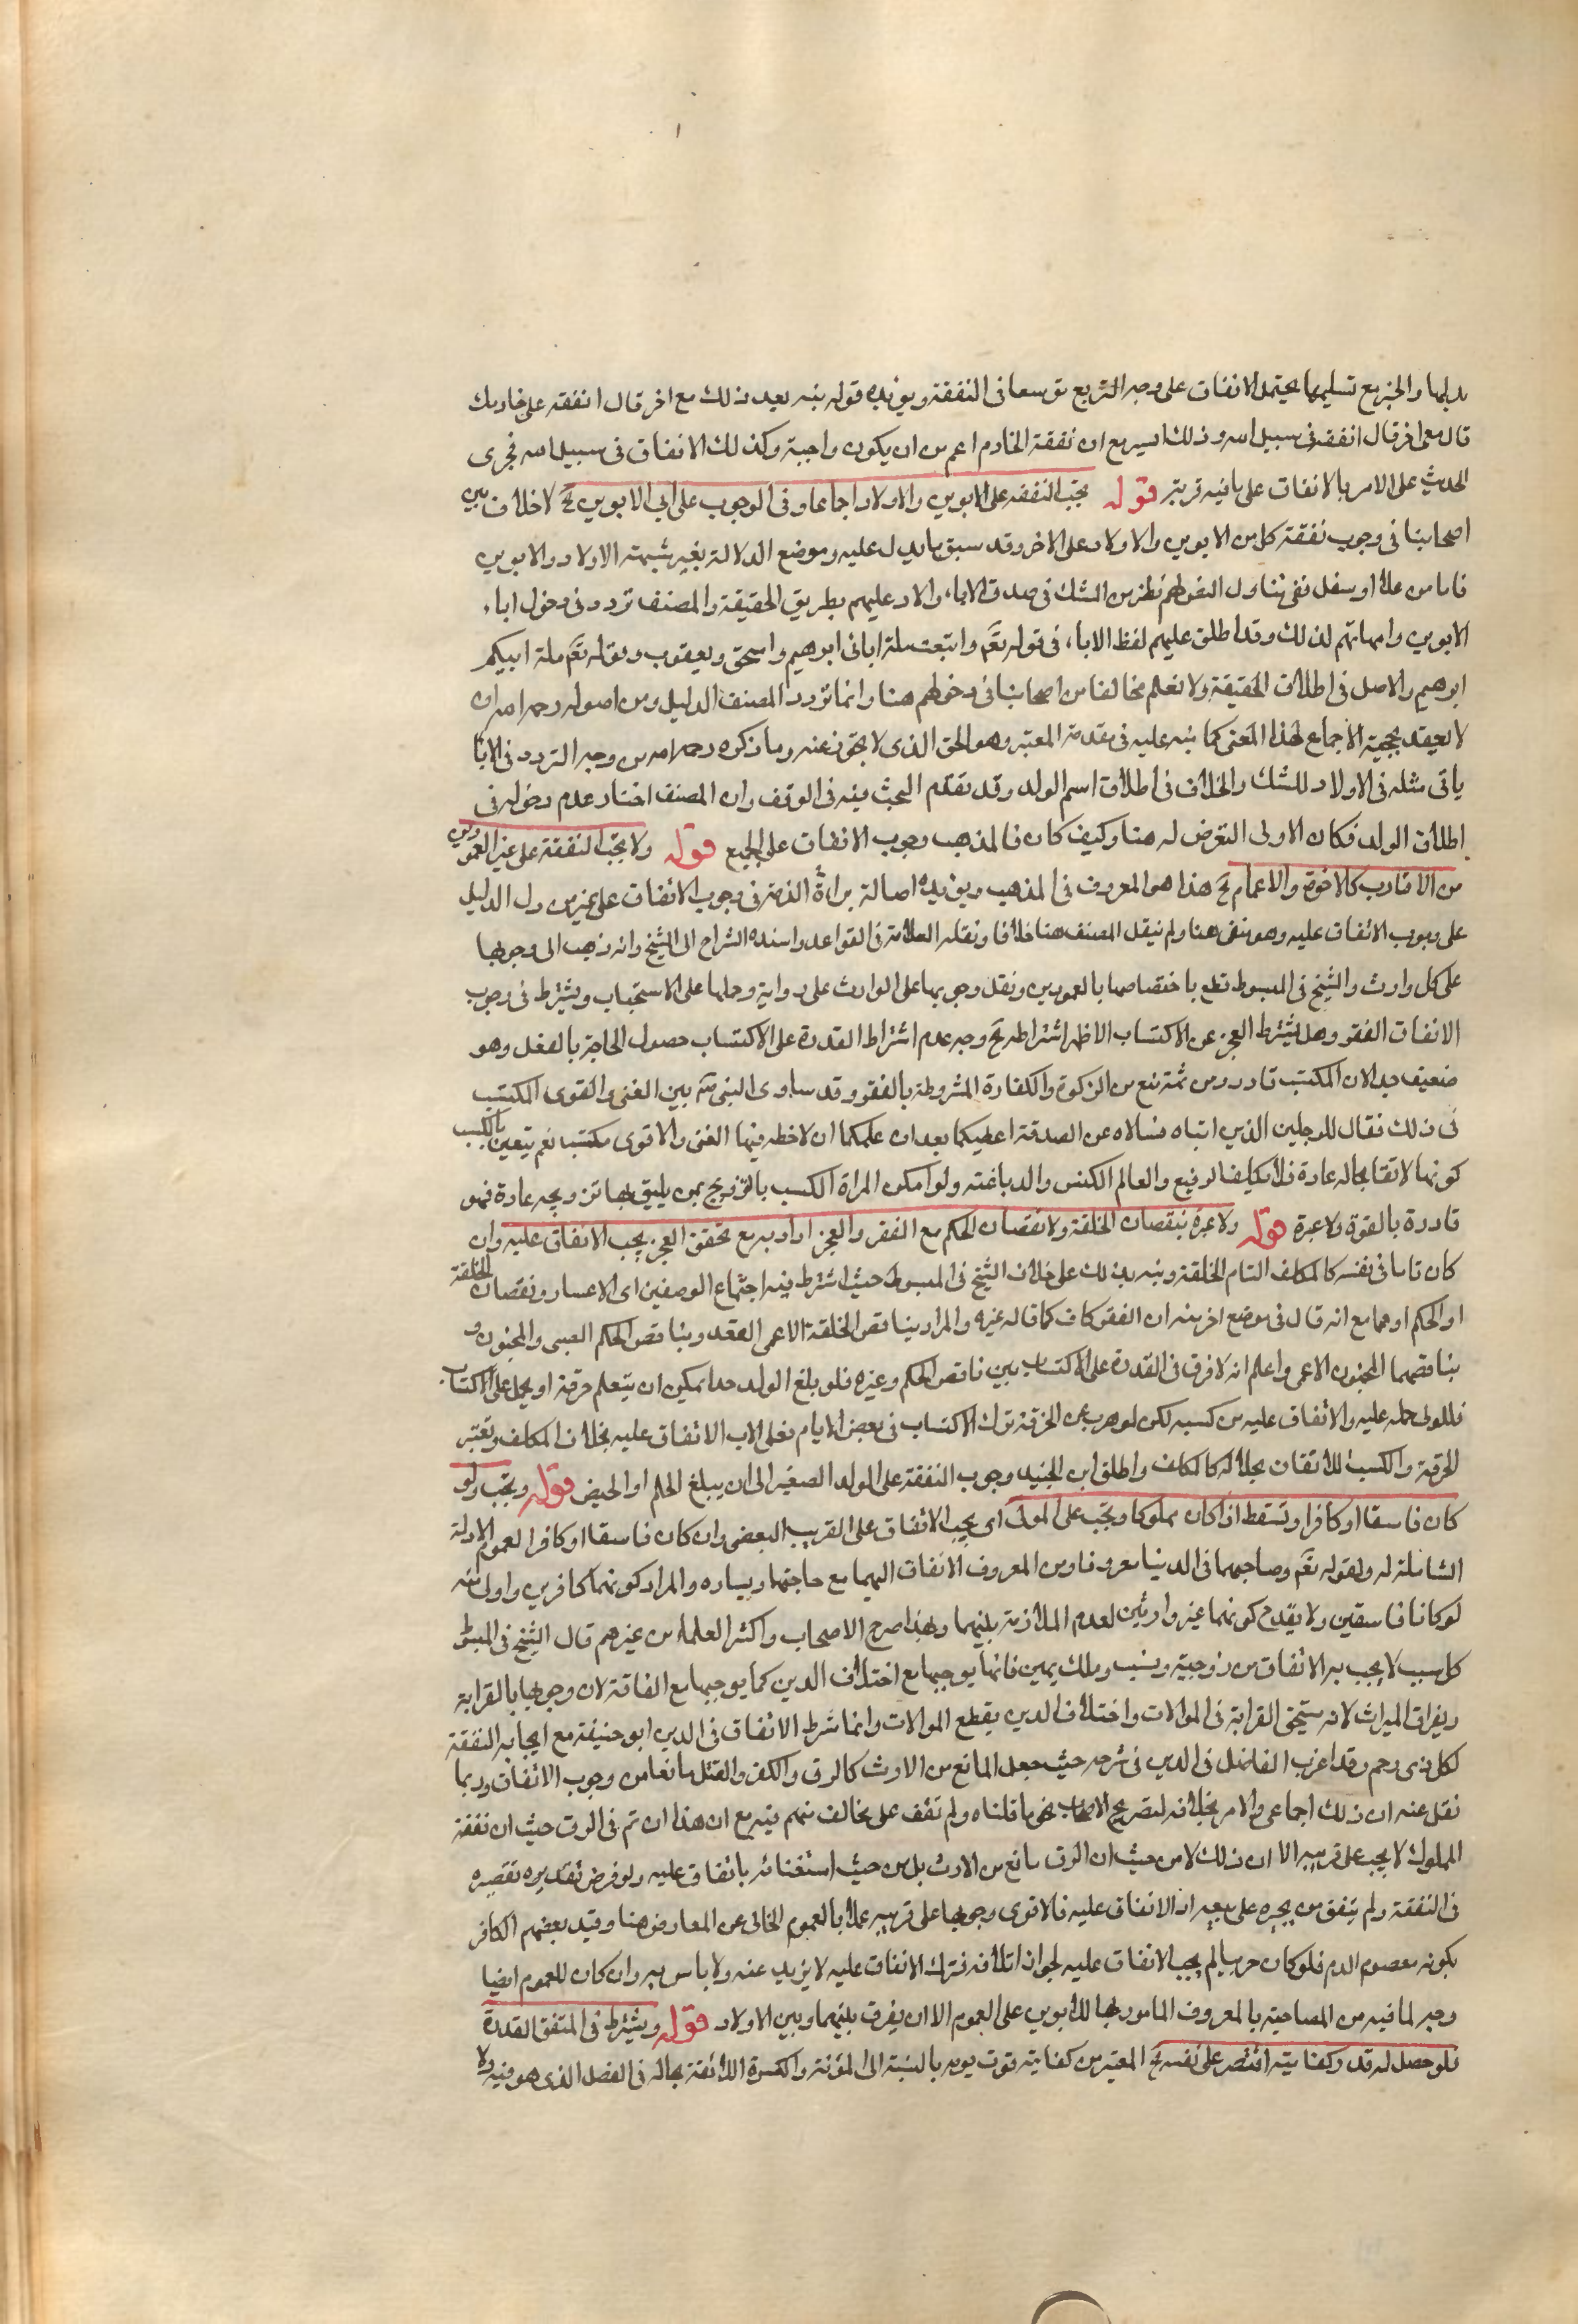 بدليها والخبر مع تسليمها يحتمل الانفاق على وجه التبرع توسعا في النفقة ويؤيده قوله فيه بعد ذلك مع اخر قال انفقه على خادمك
قال معي اخر قال انفقه في سبيل الله وذلك ايسر مع ان نفقة الخادم اعم من ان يكون واجبة وكذلك الانفاق في سبيل الله فجرى
الحديث على الامر بالانفاق على ما فيه قربة قوله تجب النفقة على الابوين والاولاد اجماعا وفي الوجوب على ابي الابوين الخ لا خلاف بين
اصحابنا في وجوب نفقة كل من الابوين والاولاد على الاخر وقد سبق ما يدل عليه وموضع الدلالة بغير شبهة الاولاد والابوين
فاما من علا او سفل ففي تناول النصوص لهم نظر من الشك في صدق الاباء والاولاد عليهم بطريق الحقيقة والمصنف تردد في دخول اباء
الابوين وامهاتهم لذلك وقد اطلق عليهم لفظ الاباء في قوله تعم واتبعت ملة ابائي ابرهيم واسحق ويعقوب وبقوله تعم ملة ابيكم
ابرهيم والاصل في اطلاق الحقيقة ولا نعلم مخالفا من اصحابنا في دخولهم هنا وانما تردد المصنف الدليل ومن اصوله رحمه الله ان
لا يعتقد بحجية الاجماع لهذا المعنى كما نبه عليه في مقدمة المعتبر وهو الحق الذي لا يجوز عنه وما ذكره رحمه الله من وجه التردد في الابا
ياتي مثله في الاولاد للشك والخلاف في اطلاق اسم الولد وقد تقدم البحث فيه في الوقف وان المصنف اختار عدم دخوله في
اطلاق الولد فكان الاولى التعرض له هنا وكيف كان فالمذهب وجوب الانفاق على الجميع قوله ولا تجب النفقة على غير العمودين
من الاقارب كالاخوة والاعمام الخ هذا هو المعروف في المذهب ويؤيده اصالة براءة الذمة في وجوب الانفاق على غير من دل الدليل
على وجوب الانفاق عليه وهو منفي هنا ولم ينقل المصنف هنا خلافا ونقله العلامة في القواعد واسنده الشراح الى الشيخ وانه ذهب الى وجوبها
على كل وارث والشيخ في المبسوط قطع باختصاصها بالعمودين ونقل وجوبها على الوارث على رواية وحملها على الاستحباب ويشترط في وجوب
الانفاق الفقر وهل يشترط العجز عن الاكتساب الاظهر اشتراطه الخ وجه عدم اشتراط القدرة على الاكتساب حصول الحاجة بالفعل وهو
ضعيف جدا لان المكتسب قادر ومن ثمة منع من الزكوة والكفارة المشروطة بالفقر وقد ساوى النبي ص بين الغنى والقوى المكتسب
في ذلك فقال للرجلين الذين اتياه فسالاه عن الصدقة اعطيكما بعد ان علمكما ان لا حظ فيها الغنى والا قوى مكتسب نعم يتعين بالكسب
كونها لائقا بحاله عادة فلا يكلف الرفيع والعالم الكنس والدباغة ولو امكن المراة الكسب بالتزويج بمن يليق بها تزويجه عادة فهو
قادرة بالقوة ولا عبرة قوله ولا عبرة بنقصان الخلقة ولا نقصان الحكم مع الفقر والعجز اراد به مع تحقق العجز يجب الانفاق عليه وان
كان تاما في نفسه كالمكلف التام الخلقة ونبه بذلك على خلاف الشيخ في المبسوط حيث اشترط فيه اجتماع الوصفين اى الاعسار ونقصان الخلقة
او الحكم او هما مع انه قال في موضع اخر منه ان الفقر كاف كما قاله غيره والمراد بناقص الخلقة الاعمى المقعد وبناقص الحكم الصبى والمجنون و
بناقصهما المجنون الاعمى واعلم انه لا فرق في القدرة على الاكتساب بين ناقص الحكم وغيره فلو بلغ الولد حدا يمكن ان يتعلم حرفة او يحمل على الاكتساب
فللولى حمله عليه والانفاق عليه من كسبه لكن لو هرب عن الحرفة ترك الاكتساب في بعض الايام فعلى الاب الانفاق عليه بخلاف المكلف ويعتبر
الحرفة والكسب اللائقان بحاله كالمكلف واطلق ابن الجنيد وجوب النفقة على الولد الصغير الى ان يبلغ الحلم او الحيض قوله وتجب ولو
كان فاسقا او كافرا وتسقط اذا كان مملوكا وتجب على المولى اى يجب الانفاق على القريب البعض وان كان فاسقا او كافرا لعموم الادلة
الشاملة له ولقوله تعم وصاحبهما في الدنيا معروفا ومن المعروف الانفاق اليهما مع حاجتهما ويساره والمراد كونهما كافرين واولى منه
لو كانا فاسقين ولا يقدح كونهما غير وارثين لعدم الملازمة بينهما وبهذا صرح الاصحاب واكثر العلماء من غيرهم قال الشيخ في المبسوط
كل سبب لا يجب به الانفاق من زوجية ونسب وملك يمين فانها يوجبها مع اختلاف الدين كما يوجبها مع اتفاقه لان وجوبها بالقرابة
ويفارق الميراث لانه يستحق القرابة في الموالات واختلاف الدين يقطع الموالات وانما شرط الاتفاق في الدين ابو حنيفة مع ايجابه النفقة
لكل ذى رحم وقد اغرب الفاضل في الدين في شرحه حيث جعل المانع من الارث كالرق والكفر والقتل مانعا من وجوب الانفاق وربما
نقل عنه ان ذلك اجماعى والامر بخلافه لتصريح الاصحاب نحو ما قلناه ولم نقف على مخالف منهم فيه مع ان هذا ان تم في الرق حيث ان نفقة
المملوك لا يجب على قريبه الا ان ذلك لا من حيث ان الرق مانع من الارث بل من حيث استغنائه بانفاق عليه ولو فرض تقديره تقصيره
في النفقة ولم يتفق من يجبره على بيعه او الانفاق عليه فالاقوى وجوبها على قريبه عملا بالعموم الخالى عن المعارض هنا وقيد بعضهم الكافر
بكونه معصوم الدم فلو كان حربيا لم يجب الانفاق عليه لجواز اتلافه فترك الانفاق عليه لا يزيد عنه ولا باس به وان كان للعموم ايضا
وجه لما فيه من المصاحبة بالمعروف المامور بها للابوين على العموم الا ان يفرق بينهما وبين الاولاد قوله ويشترط في المنفق القدرة
فلو حصل له قدر كفايته اقتصر على نفسه الخ المعتبر من كفايته قوت يومه بالنسبة الى المؤنة والكسوة اللائقة بحاله في الفصل الذى هو فيه ولا